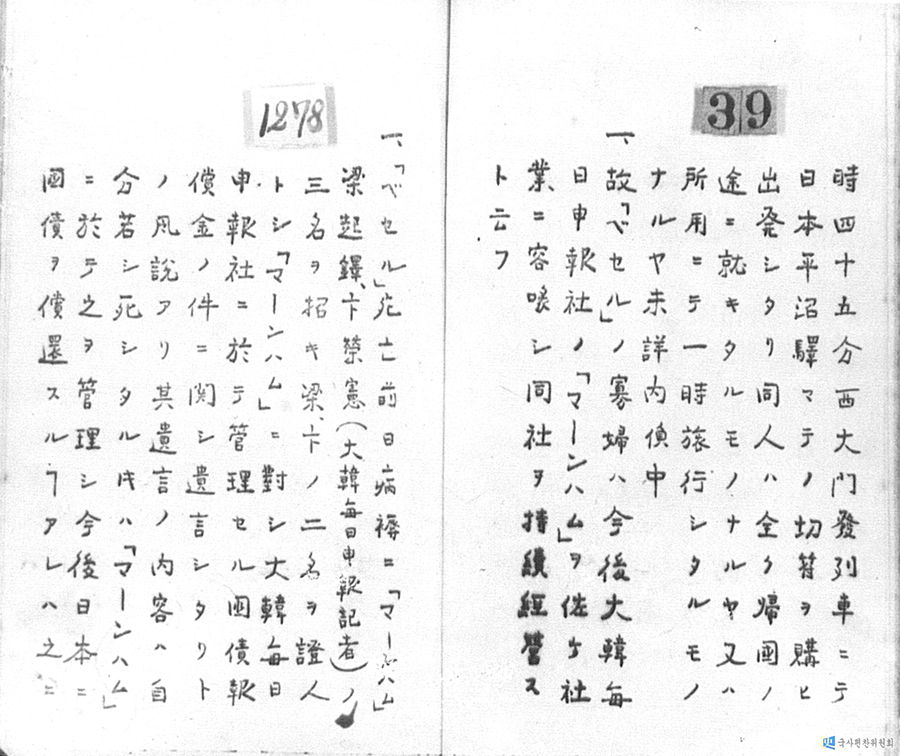 39
時四十五分西大門發列車ニテ
日本平沼驛マテノ切符ヲ購ヒ
出発シタリ同人ハ全ク帰國ノ
途ニ就キタルモノナルヤ又ハ
所用ニテ一時旅行シタルモノ
ナルヤ未詳内偵中
一、故「ベセル」ノ寡婦ハ今後大韓每
日申報社ノ「マーンハム」ヲ佐ケ社
業ニ容喙シ同社ヲ持續經營ス
ト云フ
1278
一、「ベセル」死亡前日病褥ニ「マーンハム」
梁起鐸、卞榮憲(大韓每日申報記者)ノ
三名ヲ招キ梁、卞ノ二名ヲ證人
トシ「マーンハム」ニ對シ大韓每日
申報社ニ於テ管理セル國債報
償金ノ件ニ関シ遺言シタリト
ノ風說アリ其遺言ノ内容ハ自
分若シ死シタル片ハ「マーンハム」
ニ於テ之ヲ管理シ今後日本ニ
國債ヲ償還スルヿアレハ之ニ
국사편찬위원회